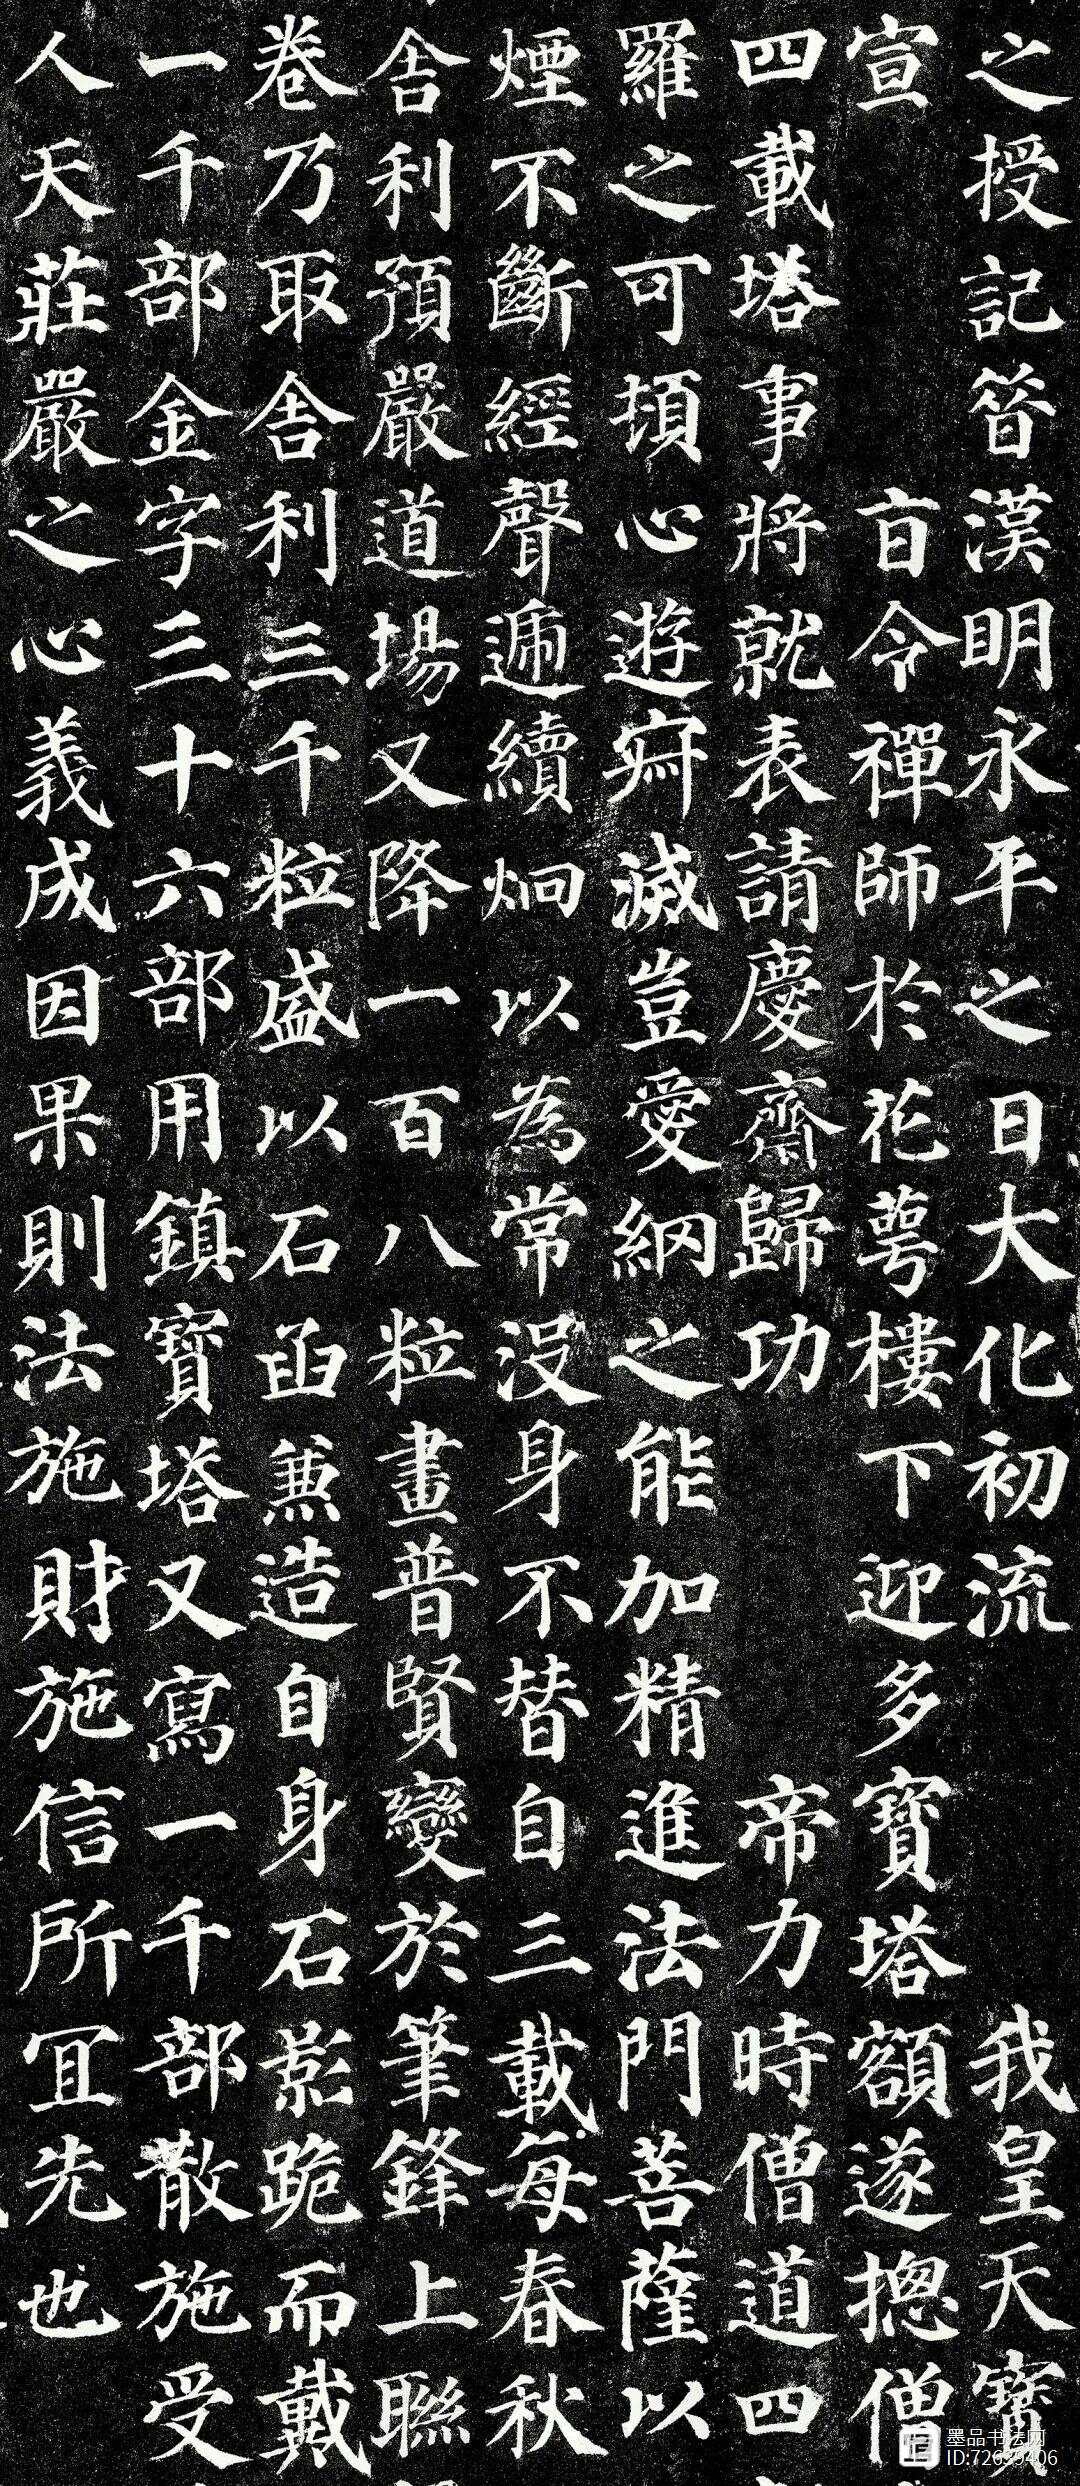 之授記昔漢明永平之日大化初流 我皇天寶
宣 旨令禪師於花萼樓下迎多寶塔額遂摠僧
四載塔事將就表請慶齋歸功 帝力時僧道四
羅之可頃心遊寂滅豈愛網之能加精進法門菩薩以
煙不斷經聲遞續炯以為常沒身不替自三載每春秋
舍利預嚴道場又降一百八粒畫普賢變於筆鋒上聯
卷乃取舍利三千粒盛以石函兼造自身石影跪而戴
一千部金字三十六部用鎮寶塔又寫一千部散施受
人天莊嚴之心義成因果則法施財施信所冝先也
墨品书法网
ID:72639406